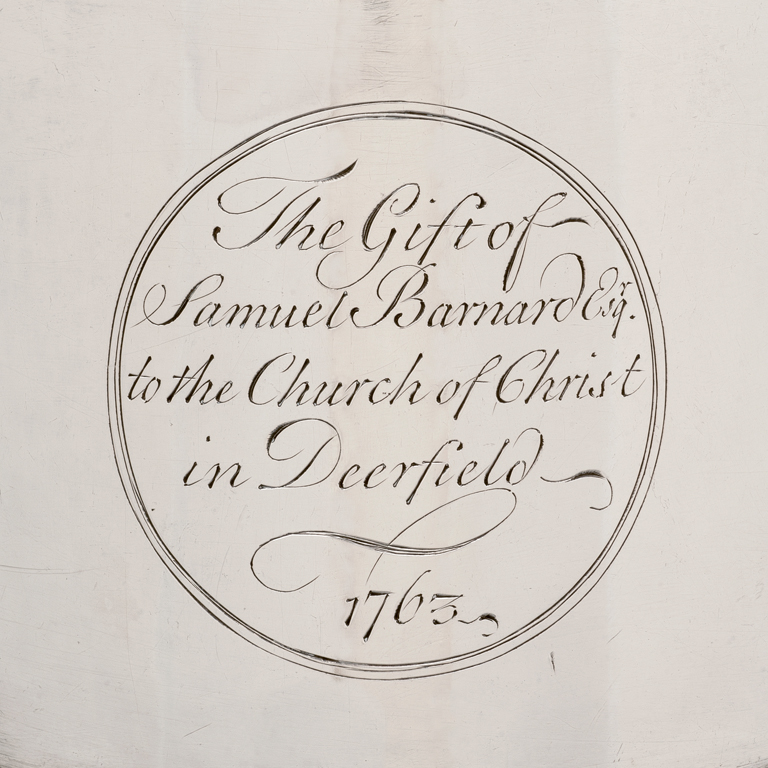 The Gift of
Samuel Barnard Esqr.
to the Church of Christ
in Deerfield
1763